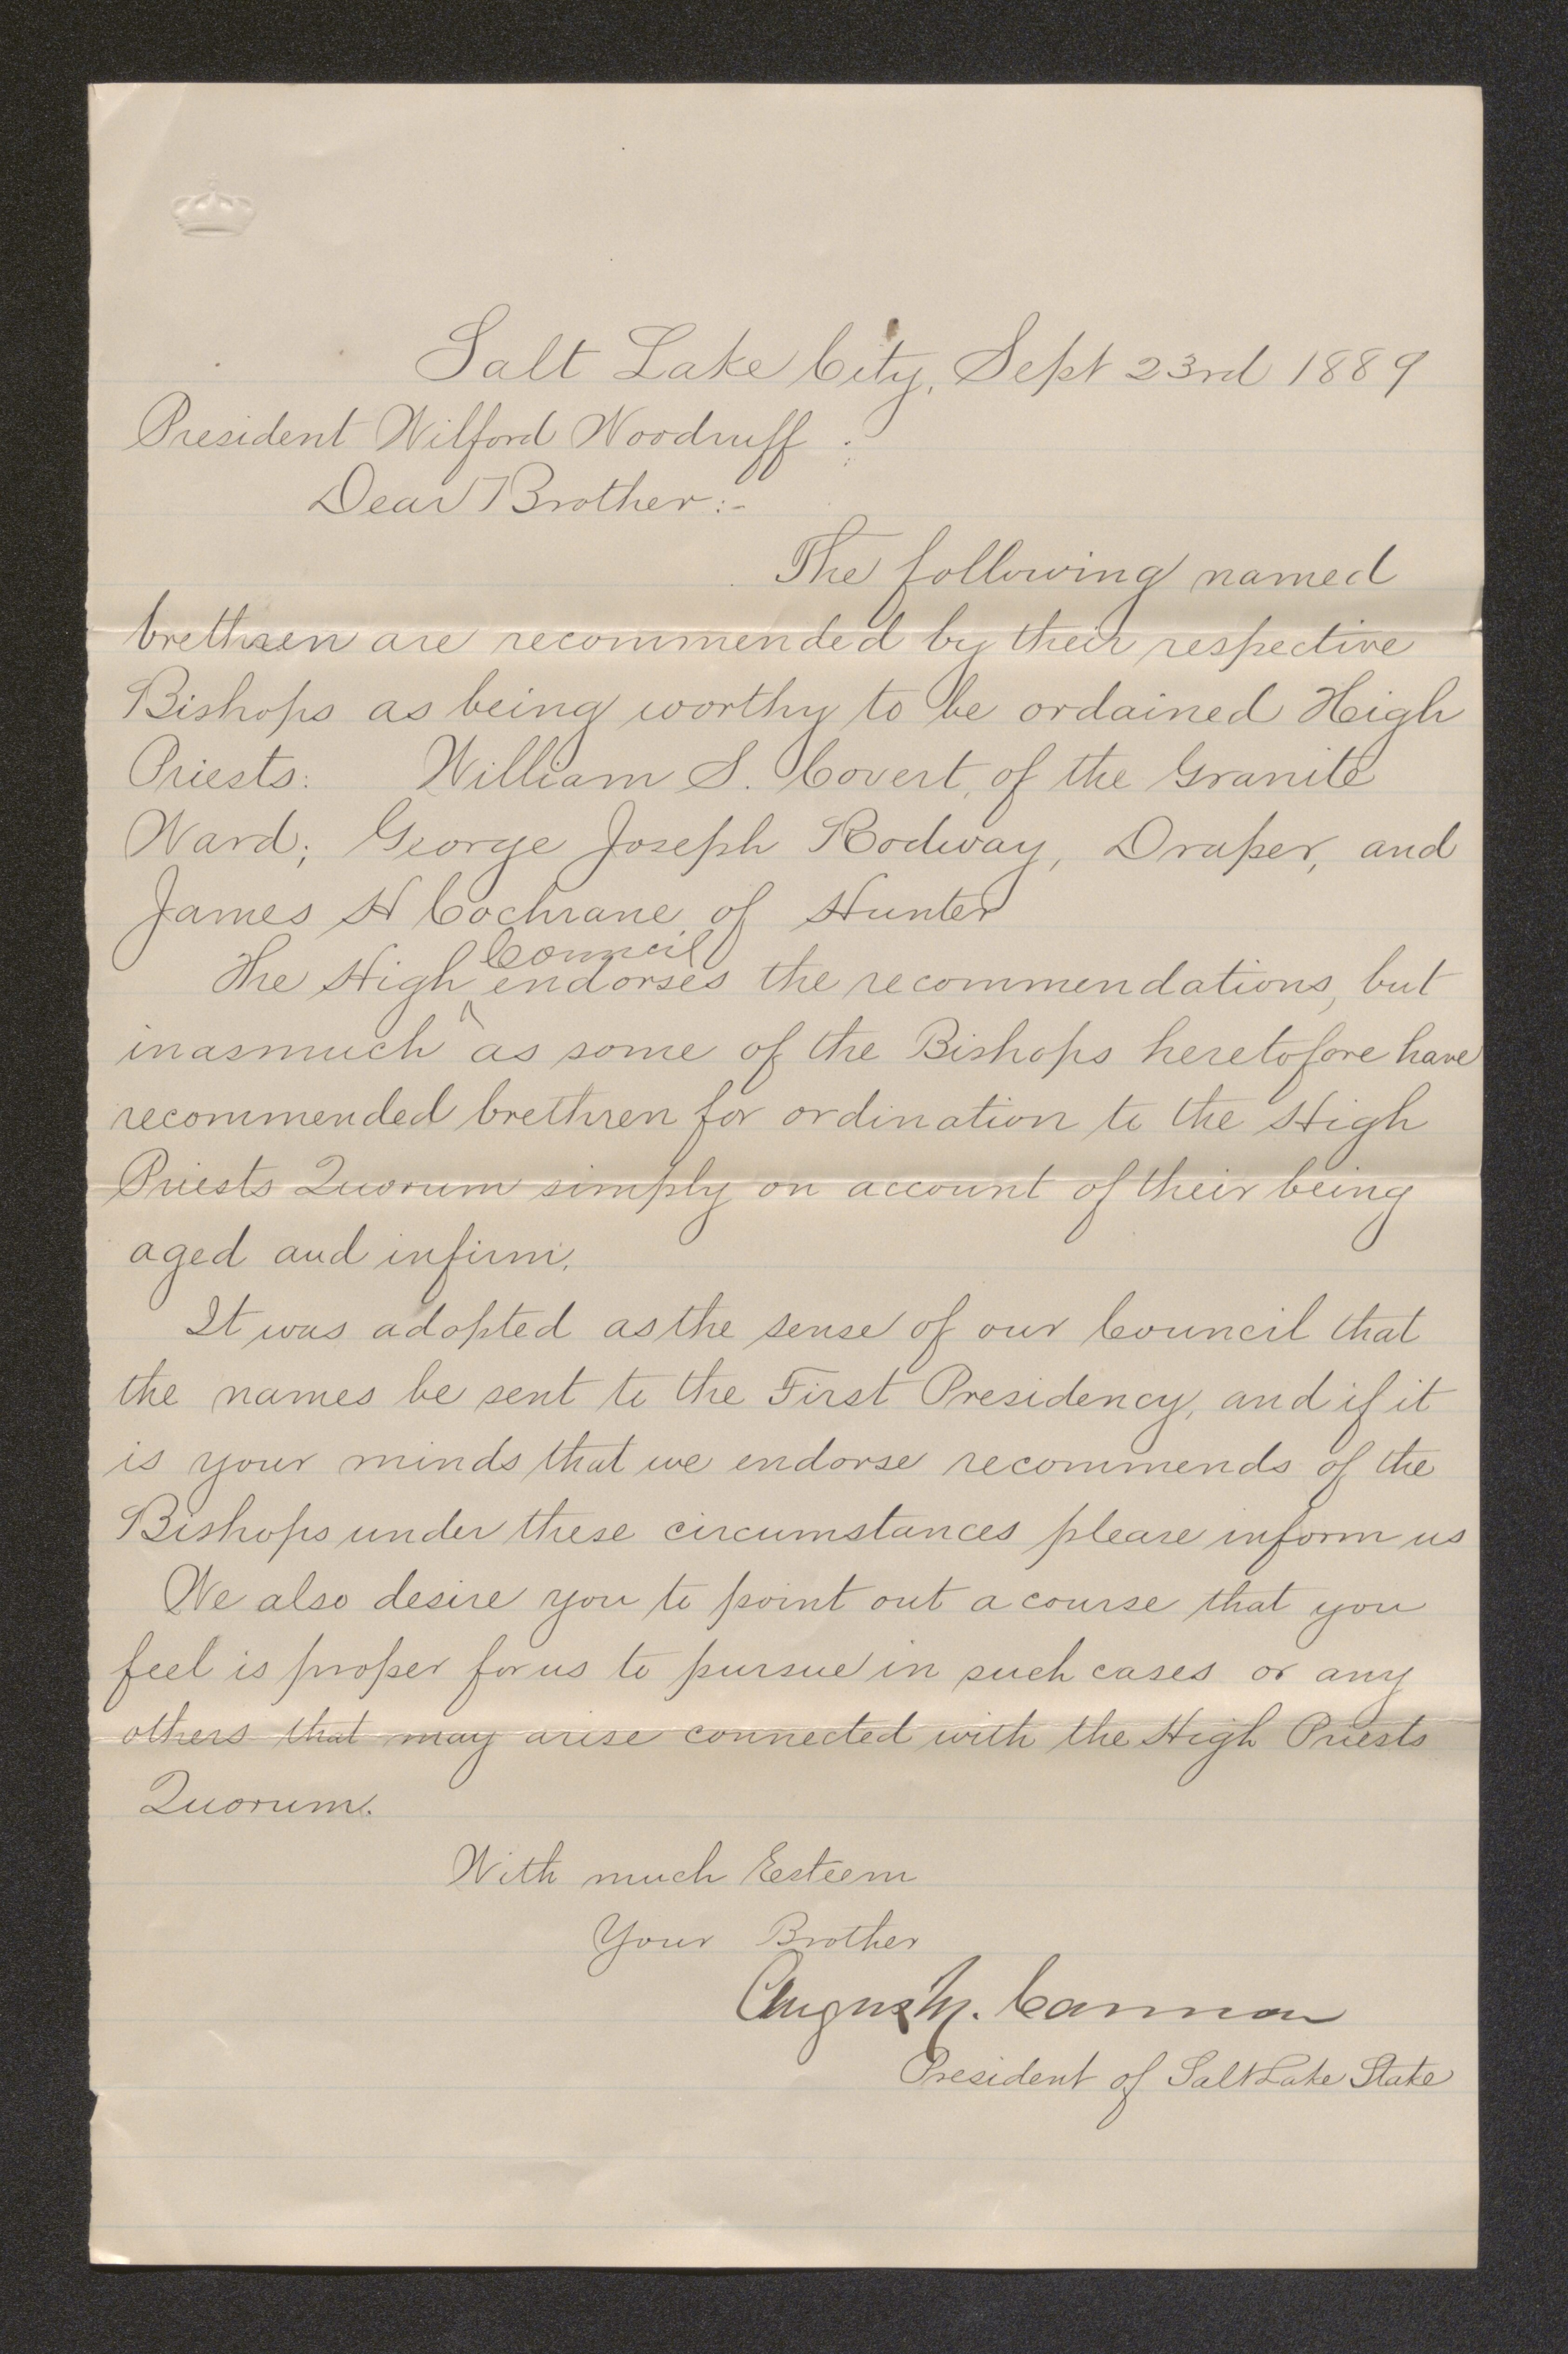 Salt Lake City, Sept 23rd 1889
President Wilford Woodruff :
Dear Brother:-
The following named
brethren are recommended by their respective
Bishops as being worthy to be ordained High
Priests: William S. Covert, of the Granite
Ward; George Joseph Rodway, Draper, and
James H Cochrane, of Hunter
Council
The High ^ endorses the recommendations, but
inasmuch as some of the Bishops heretofore have
recommended brethren for ordination to the High
Priests Quorum simply on account of their being
aged and infirm.
It was adopted as the sense of our Council that
the names be sent to the First Presidency, and if it
is your minds that we endorse recommends of the
Bishops under these circumstances please inform us
We also desire you to point out a course that you
feel is proper for us to pursue in such cases or any
others that may arise connected with the High Priests
Quorum.
With much Esteem
Your Brother
Angus M. Cannon
President of Salt Lake Stake